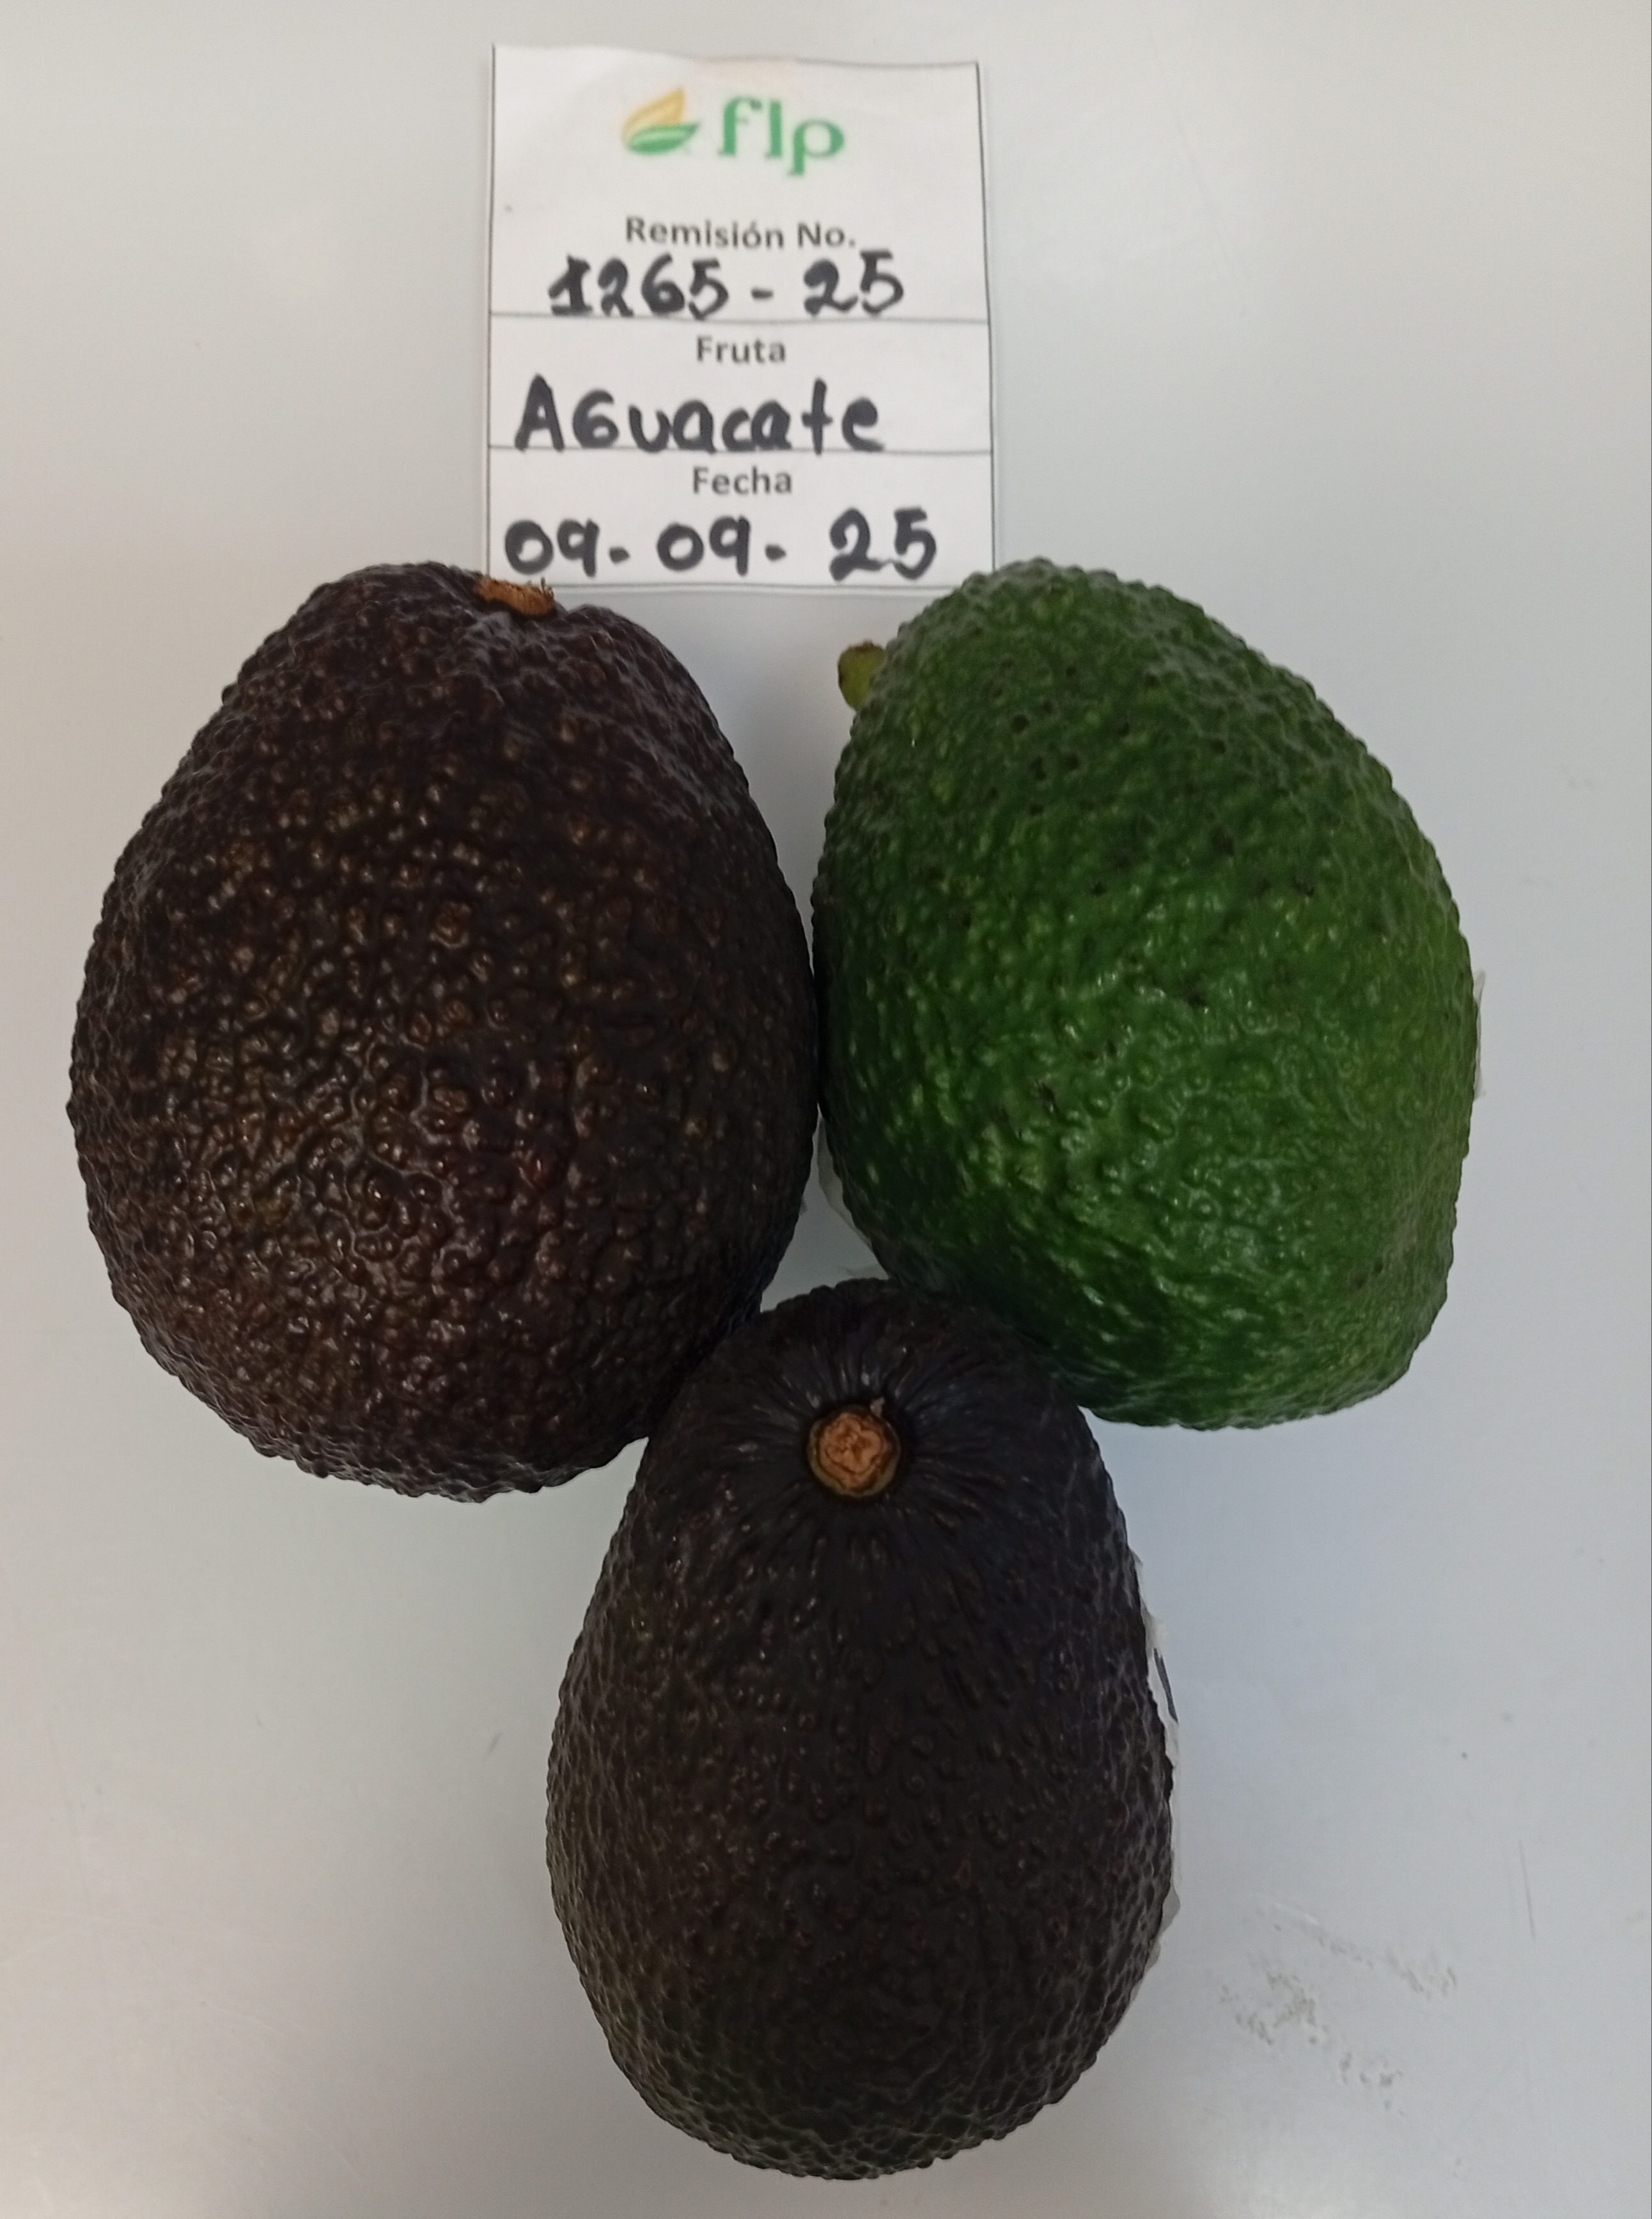 flp
Remisión No.
1265-25
Fruta
AGuacate
Fecha
09-09-25